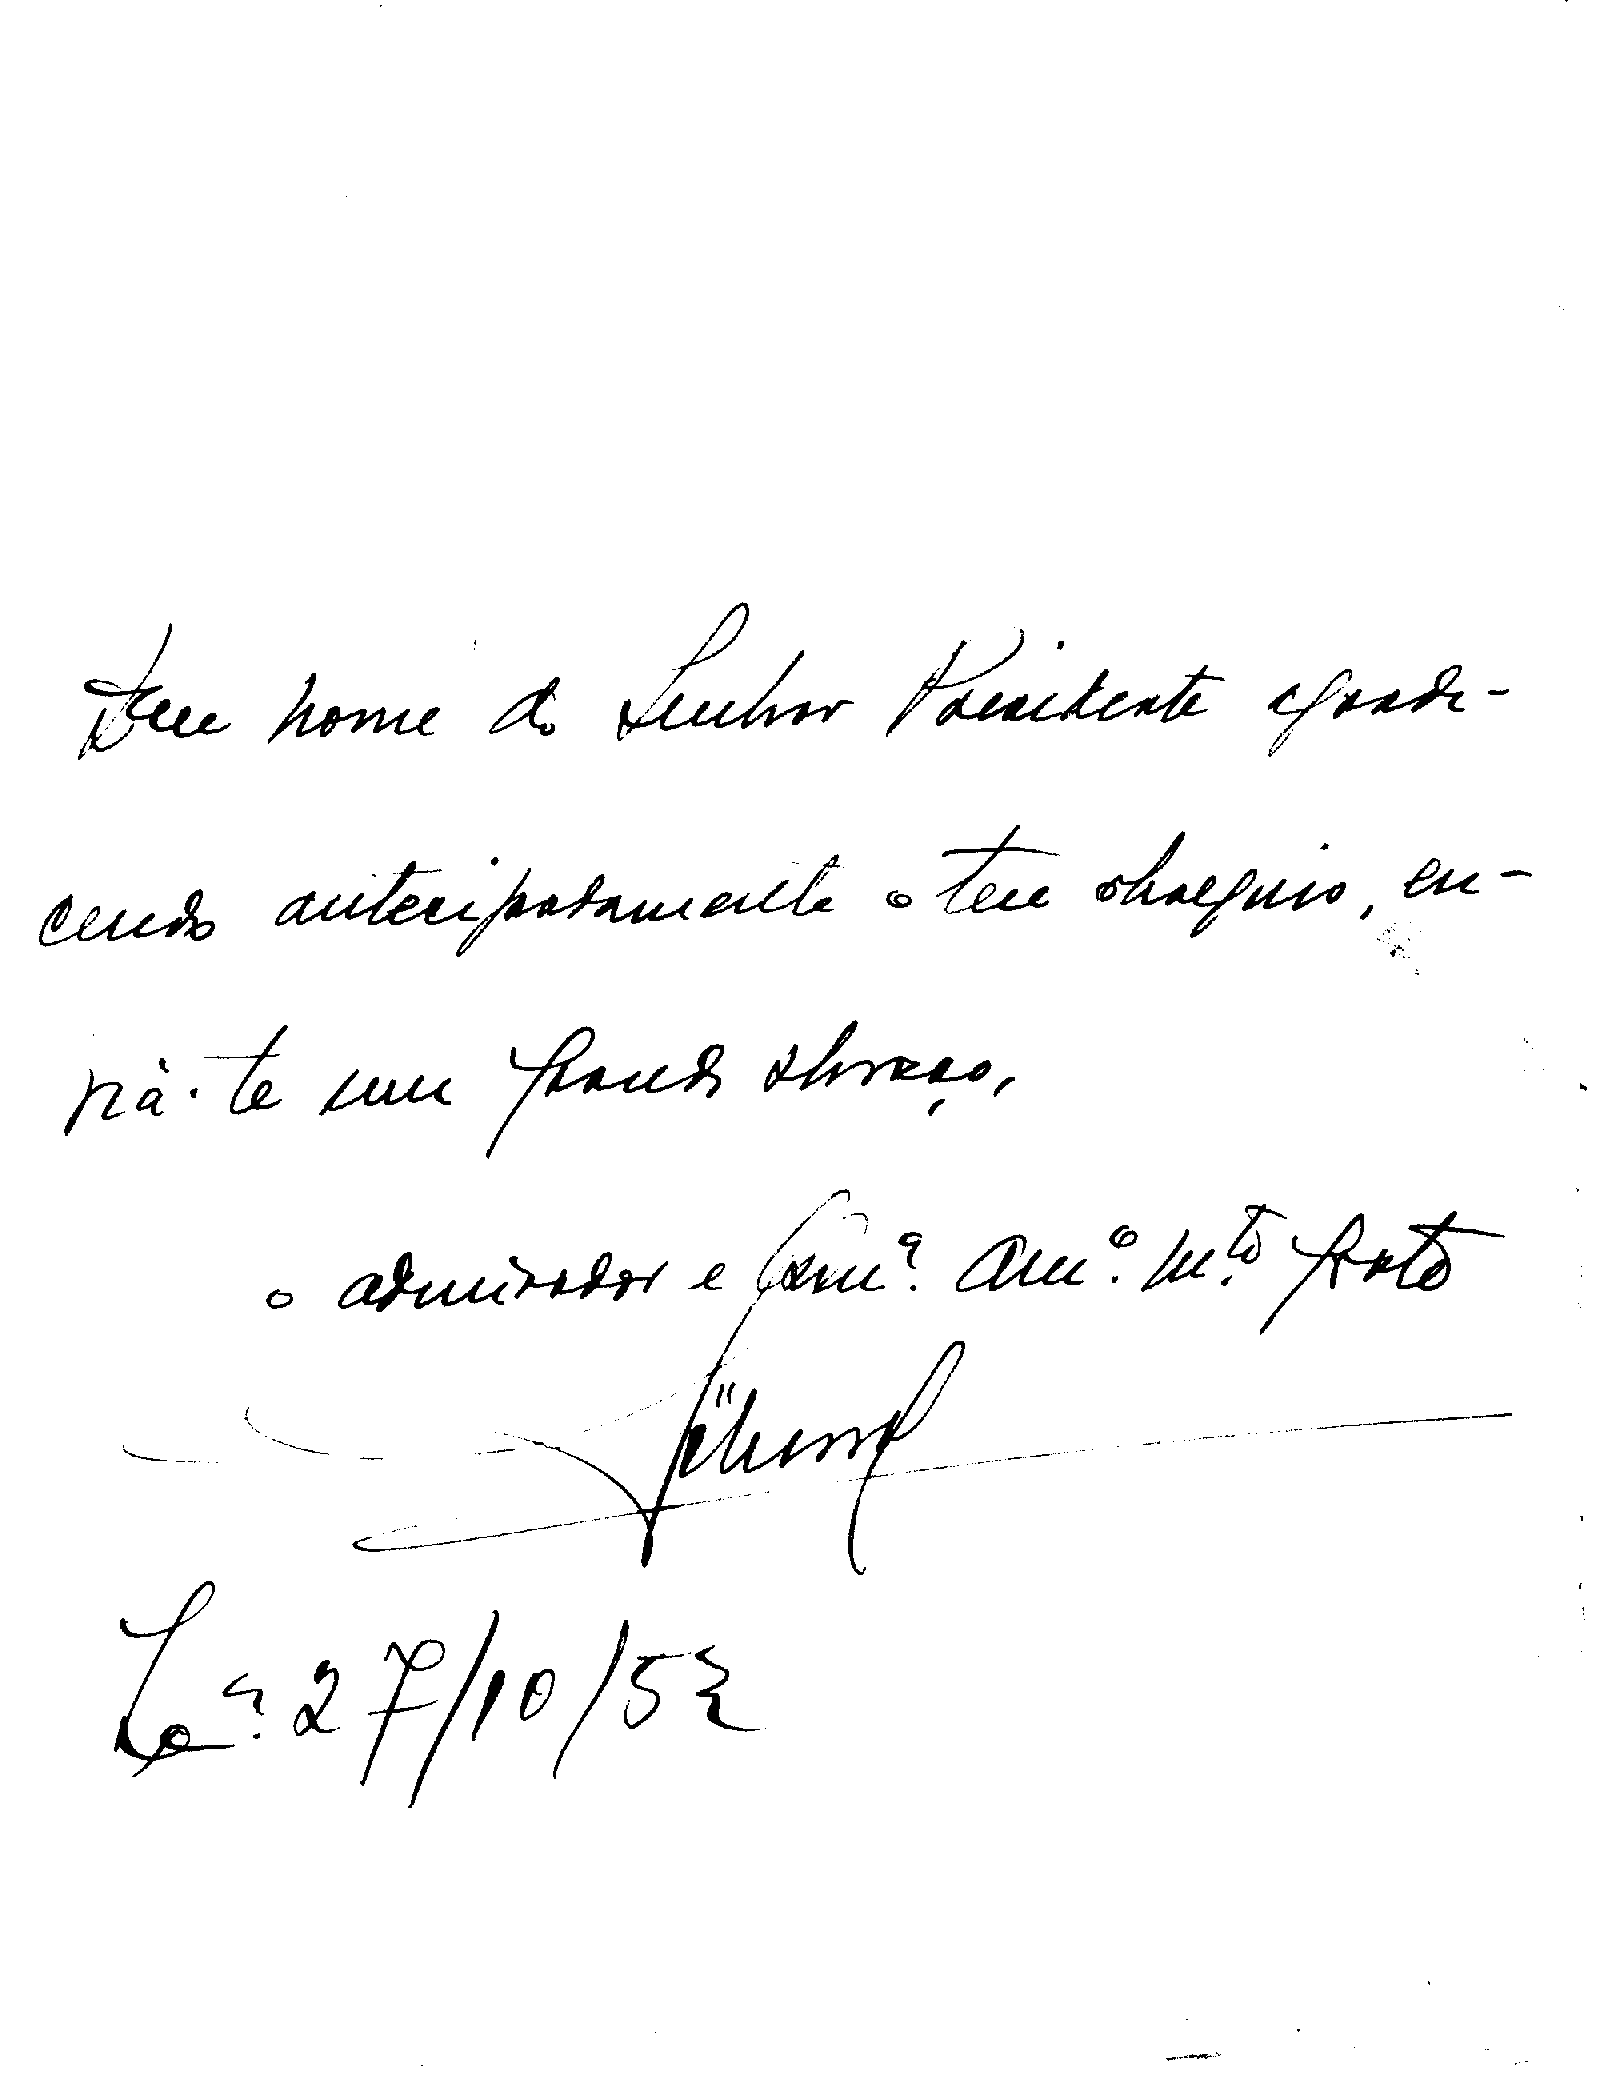 Em nome do Senhor Presidente agrade-
cendo antecipadamente o teu obsequio, en-
via-te um grande abraço,
o admirador e Comº. Amº. mto grato
Lxª. 27/10/52